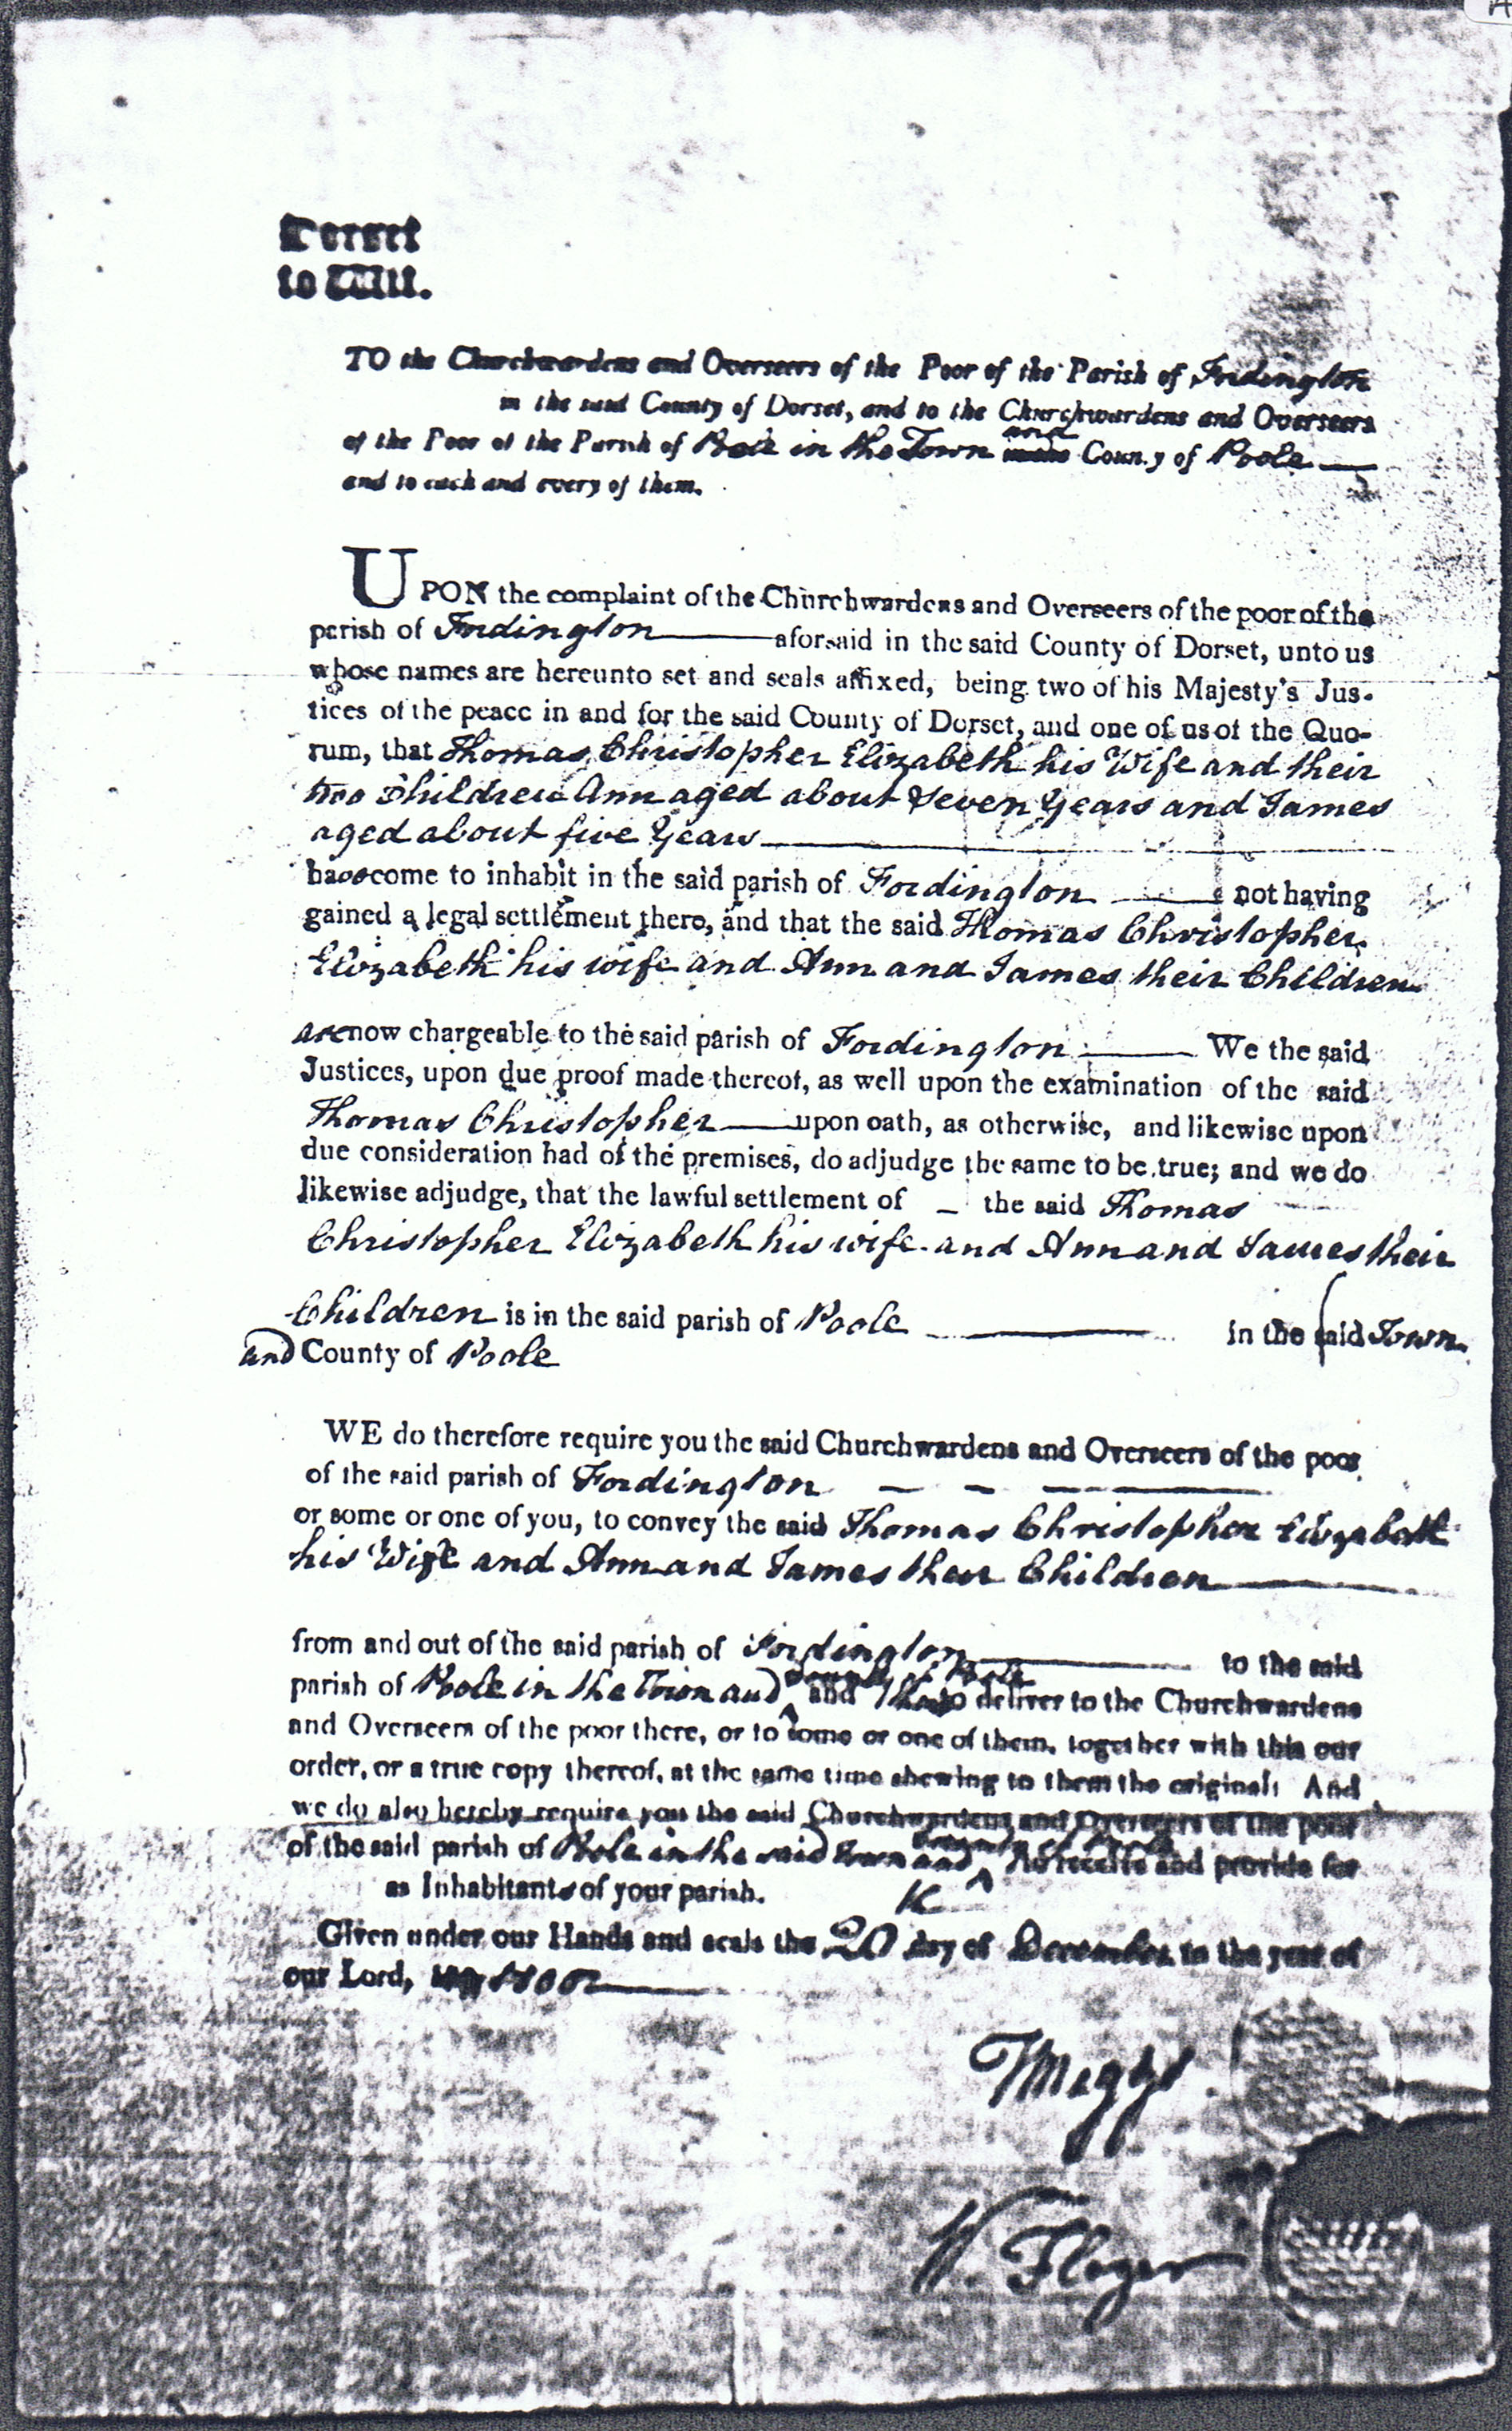 Dorset
to Wit.
TO the Churchwardens and Overseers of the Poor of the Parish of Fordington
in the said County of Dorset, and to the Churchwardens and Overseers
of the Poor of the Parish of Poole in the Town and County of Poole
and to each and every of them.
UPON the complaint of the Churchwardens and Overseers of the poor of the
parish of Fordington aforsaid in the said County of Dorset, unto us
whose names are hereunto set and seals affixed, being two of his Majesty's Jus-
tices of the peace in and for the said County of Dorset, and one of us of the Quo-
rum, that Thomas Christopher Elizabeth his Wife and their
two Children Ann aged about Seven Years and James
aged about five Years
have come to inhabit in the said parish of Fordington not having
gained a legal settlement there, and that the said Thomas Christopher
Elizabeth his wife and Ann and James their Children
are now chargeable to the said parish of Fordington We the said
Justices, upon due proof made thereof, as well upon the examination of the said
Thomas Christopher upon oath, as otherwise, and likewise upon
due consideration had of the premises, do adjudge the same to be true; and we do
likewise adjudge, that the lawful settlement of the said Thomas
Christopher Elizabeth his wife and Ann and James their
Children is in the said parish of Poole in the said Town
and County of Poole
WE do therefore require you the said Churchwardens and Overseers of the poor
of the said parish of Fordington
or some or one of you, to convey the said Thomas Christopher Elizabeth
his Wife and Ann and James their Children
from and out of the said parish of Fordington to the said
parish of Poole in the Town and County of Poole and them to deliver to the Churchwardens
and Overseers of the poor there, or to some or one of them, together with this our
order, or a true copy thereof, at the same time shewing to them the original: And
we do also hereby require you the said Churchwardens and Overseers of the poor
of the said parish of Poole in the said Town and County of Poole to receive and provide for
as Inhabitants of your parish.
Given under our Hands and seals the 20 day of December in the year of
our Lord,
W. Floyer